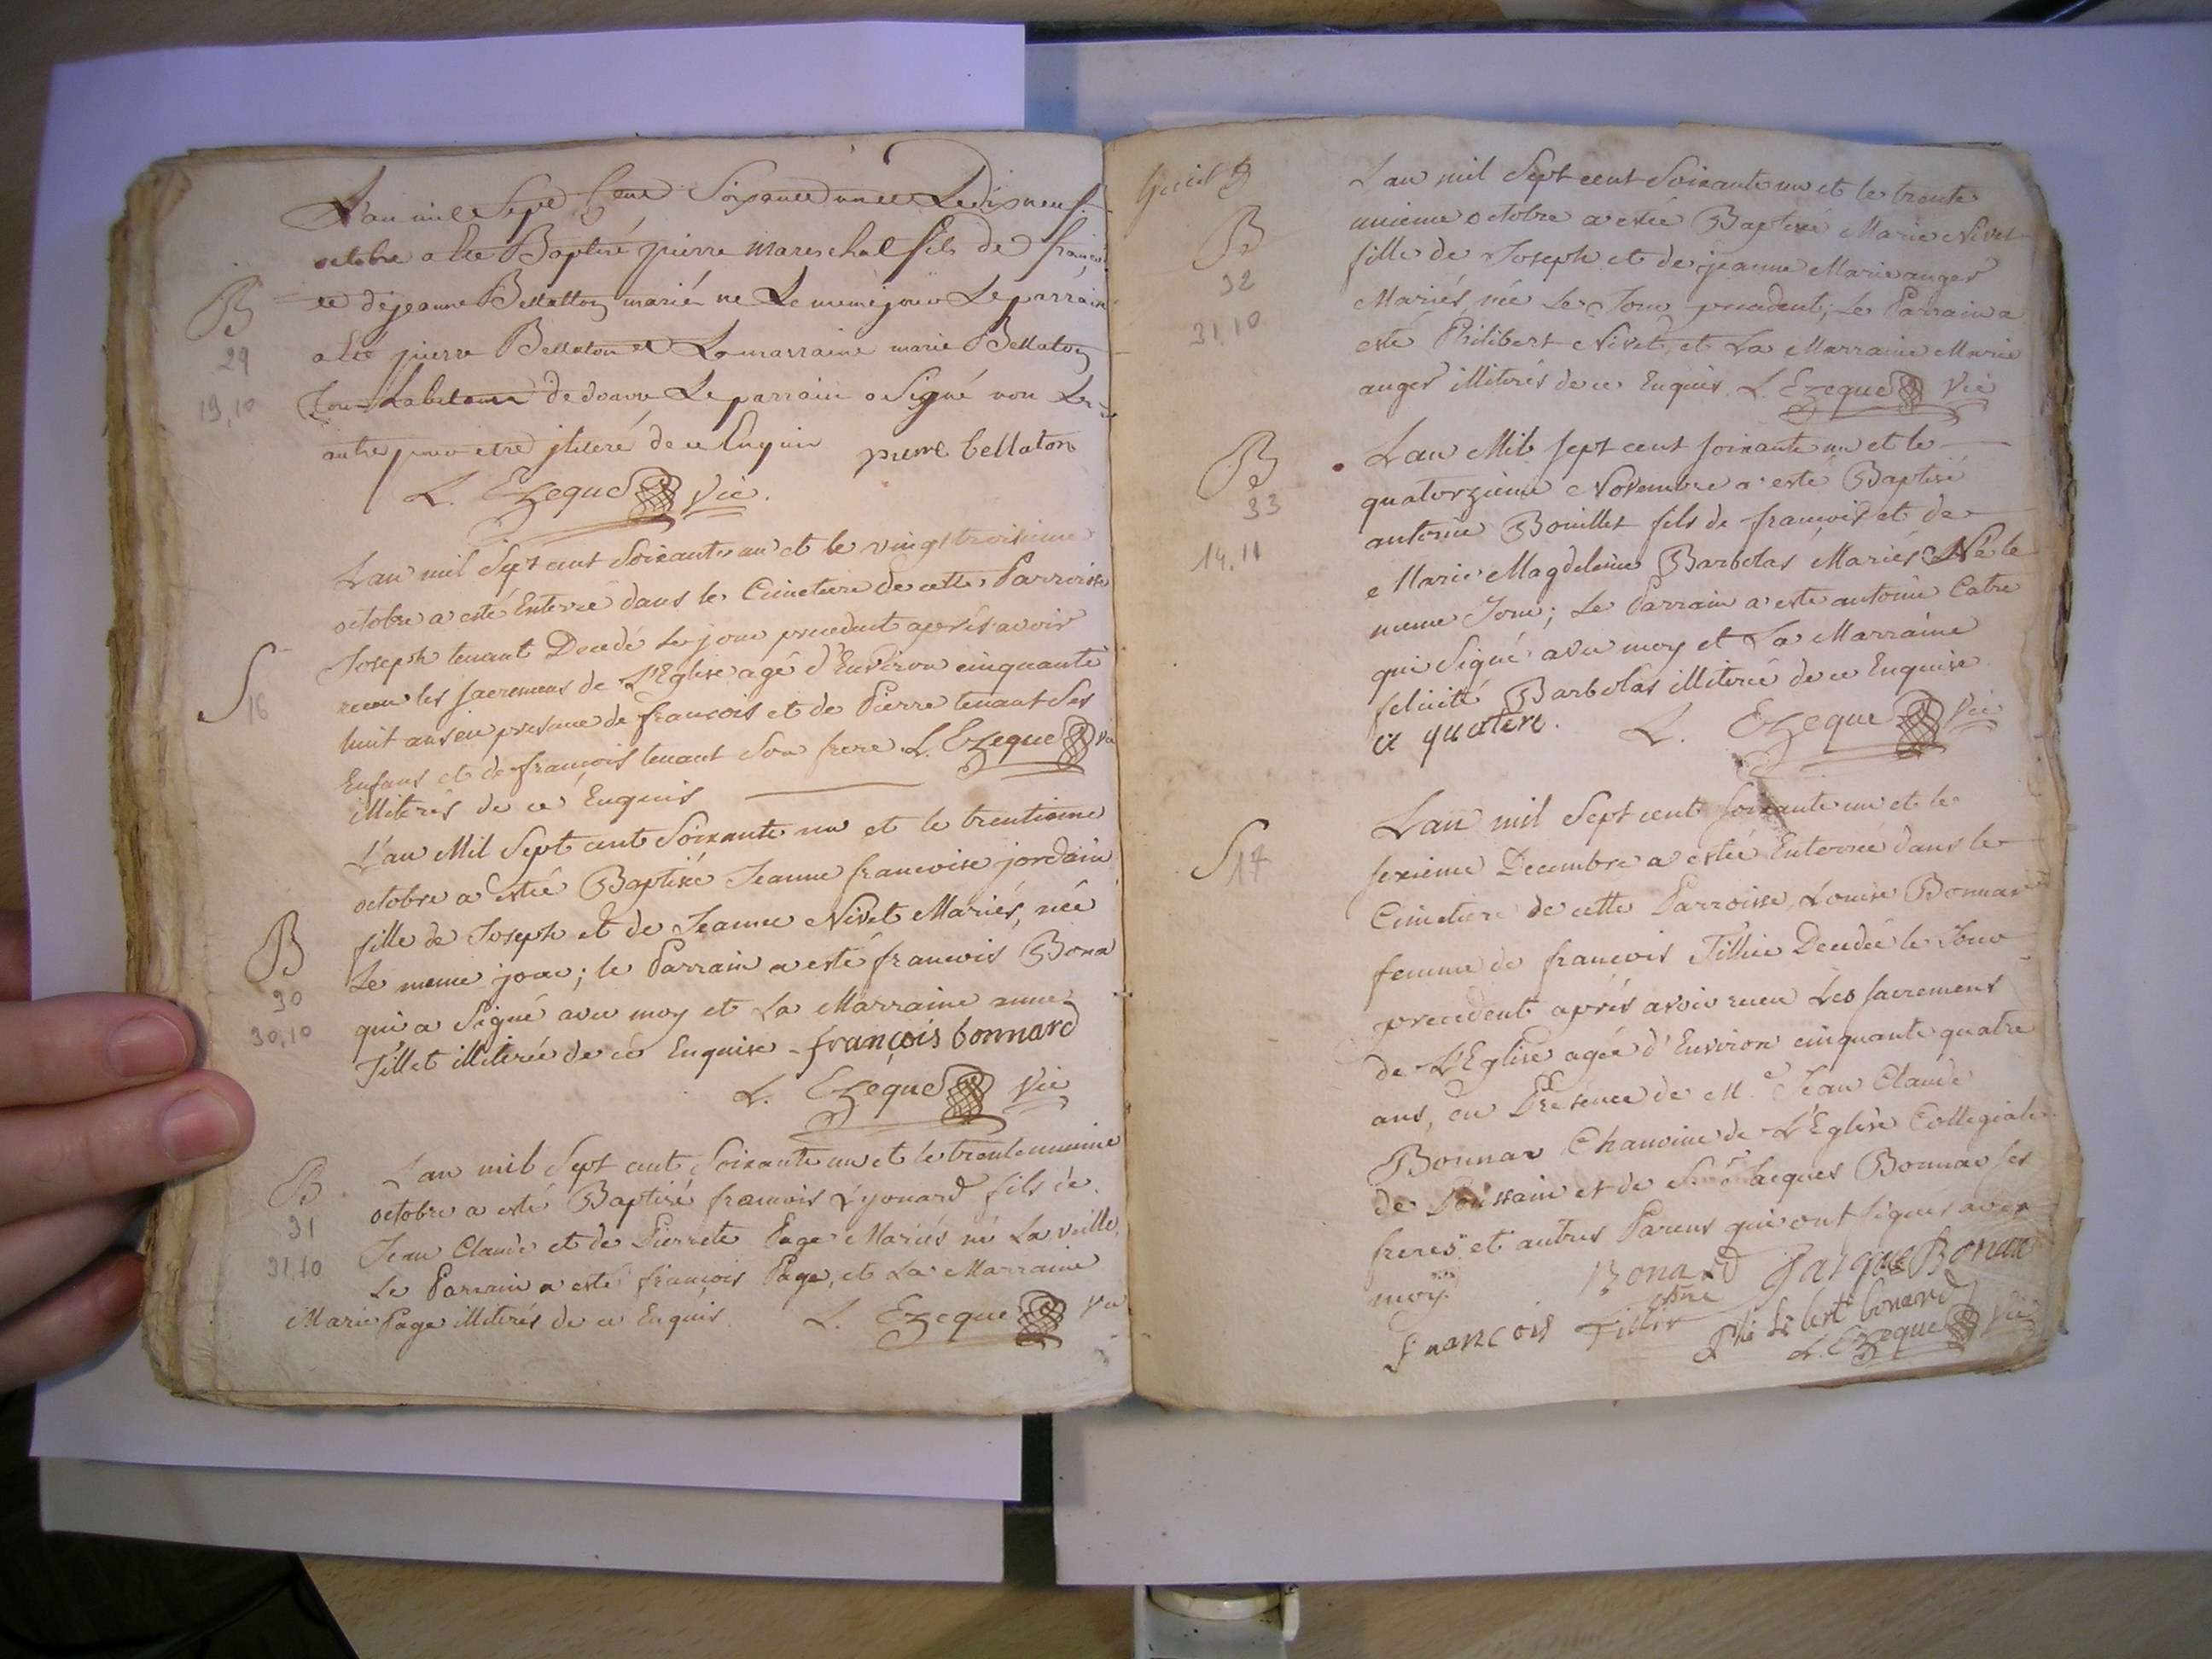 L'an mil Sept Cent Soixante un et Le dixneuf
octobre a ete Baptisé pierre mareschal fils de françois
et de jeanne Bellaton mariés ne Le meme jour Le parrain
B
29
19,10
a ete pierre Bellaton et La marraine marie Bellaton
Tous habitans de Le parrain a Signé non Les
autres pour etre jlliteré de ce Enquis pierre bellaton
L. Ezeque Vic.
L'an mil Sept cent Soixante un et le vingt troisieme
octobre a esté Enterré dans le Cimetiere de cette Parroisse
Joseph tenant Decedé Le jour precedent aprés avoir
S
16
receu les sacremens de L'Eglise agé d'Environ cinquante
huit ans en presence de francois et de Pierre tenant Ses
Enfans et de françois tenant Son frere L. Ezeque Vic
illiterés de ce Enquis
L'an Mil Sept cent Soixante un et le trentieme
octobre a estée Baptisée Jeanne francoise jordain
fille de Joseph et de Jeanne Nivet Mariés, née
B
30
30,10
Le meme jour; le Parrain a esté francois Bona
qui a Signé avec moy et La Marraine anne
Tillet illiterée de ce Enquise - françois bonnard
L. Ezeque Vic
B
31
31,10
L'an mil Sept cent Soixante un et le trente unieme
octobre a esté Baptisé francois Lyonard fils de
Jean Claude et de Pierrete Page Mariés né La veille,
Le Parrain a esté françois Page, et La Marraine
Marie Page illiterés de ce Enquis. L. Ezeque Vic
B
32
31,10
L'an mil Sept cent Soixante un et le trente
unieme octobre a estée Baptisée Marie Nivet
fille de Joseph et de jeanne Marie auger
Mariés, née Le Jour precedent; Le Parrain a
esté Philibert Nivet, et La Marraine Marie
auger illiterés de ce Enquis. L. Ezeque Vic
B
33
14,11
L'an Mil sept cent soixante un et le
quatorzieme Novembre a esté Baptisé
antoine Bouillet fils de francois et de
Marie Magdeleine Barbolas Mariés Né le
meme Jour; Le Parrain a esté antoine Catre
qui Signé avec moy et La Marraine
felicité Barbolas illiterée de ce Enquise
L. Ezeque Vic
S
17
L'an mil Sept cent soixante un et le
sezieme Decembre a estée Enterrée dans le
Cimetiere de cette Parroisse, Louise Bonnar
femme de francois Tillie Decedée le Jour
precedent aprés avoir receu Les sacremens
de L'Eglise agée d'Environ cinquante quatre
ans, en Présence de Mre Jean Claude
Bonnar Chanoine de L'Eglise Collegiale
de et de Sr Jacques Bonnar ses
freres et autres Parens qui ont signés avec
moy. Bonard Jacque Bonar
chne
francois Tillie Philibert bonard
L. Ezeque Vic